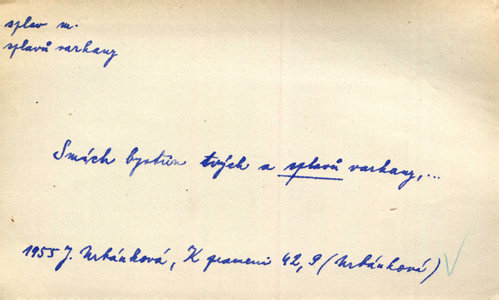 splav m.
splavů varhany
Smích bystřin tvých a splavů varhany,...
1955 J. Urbánková, K prameni 42, 9 (Urbánková)